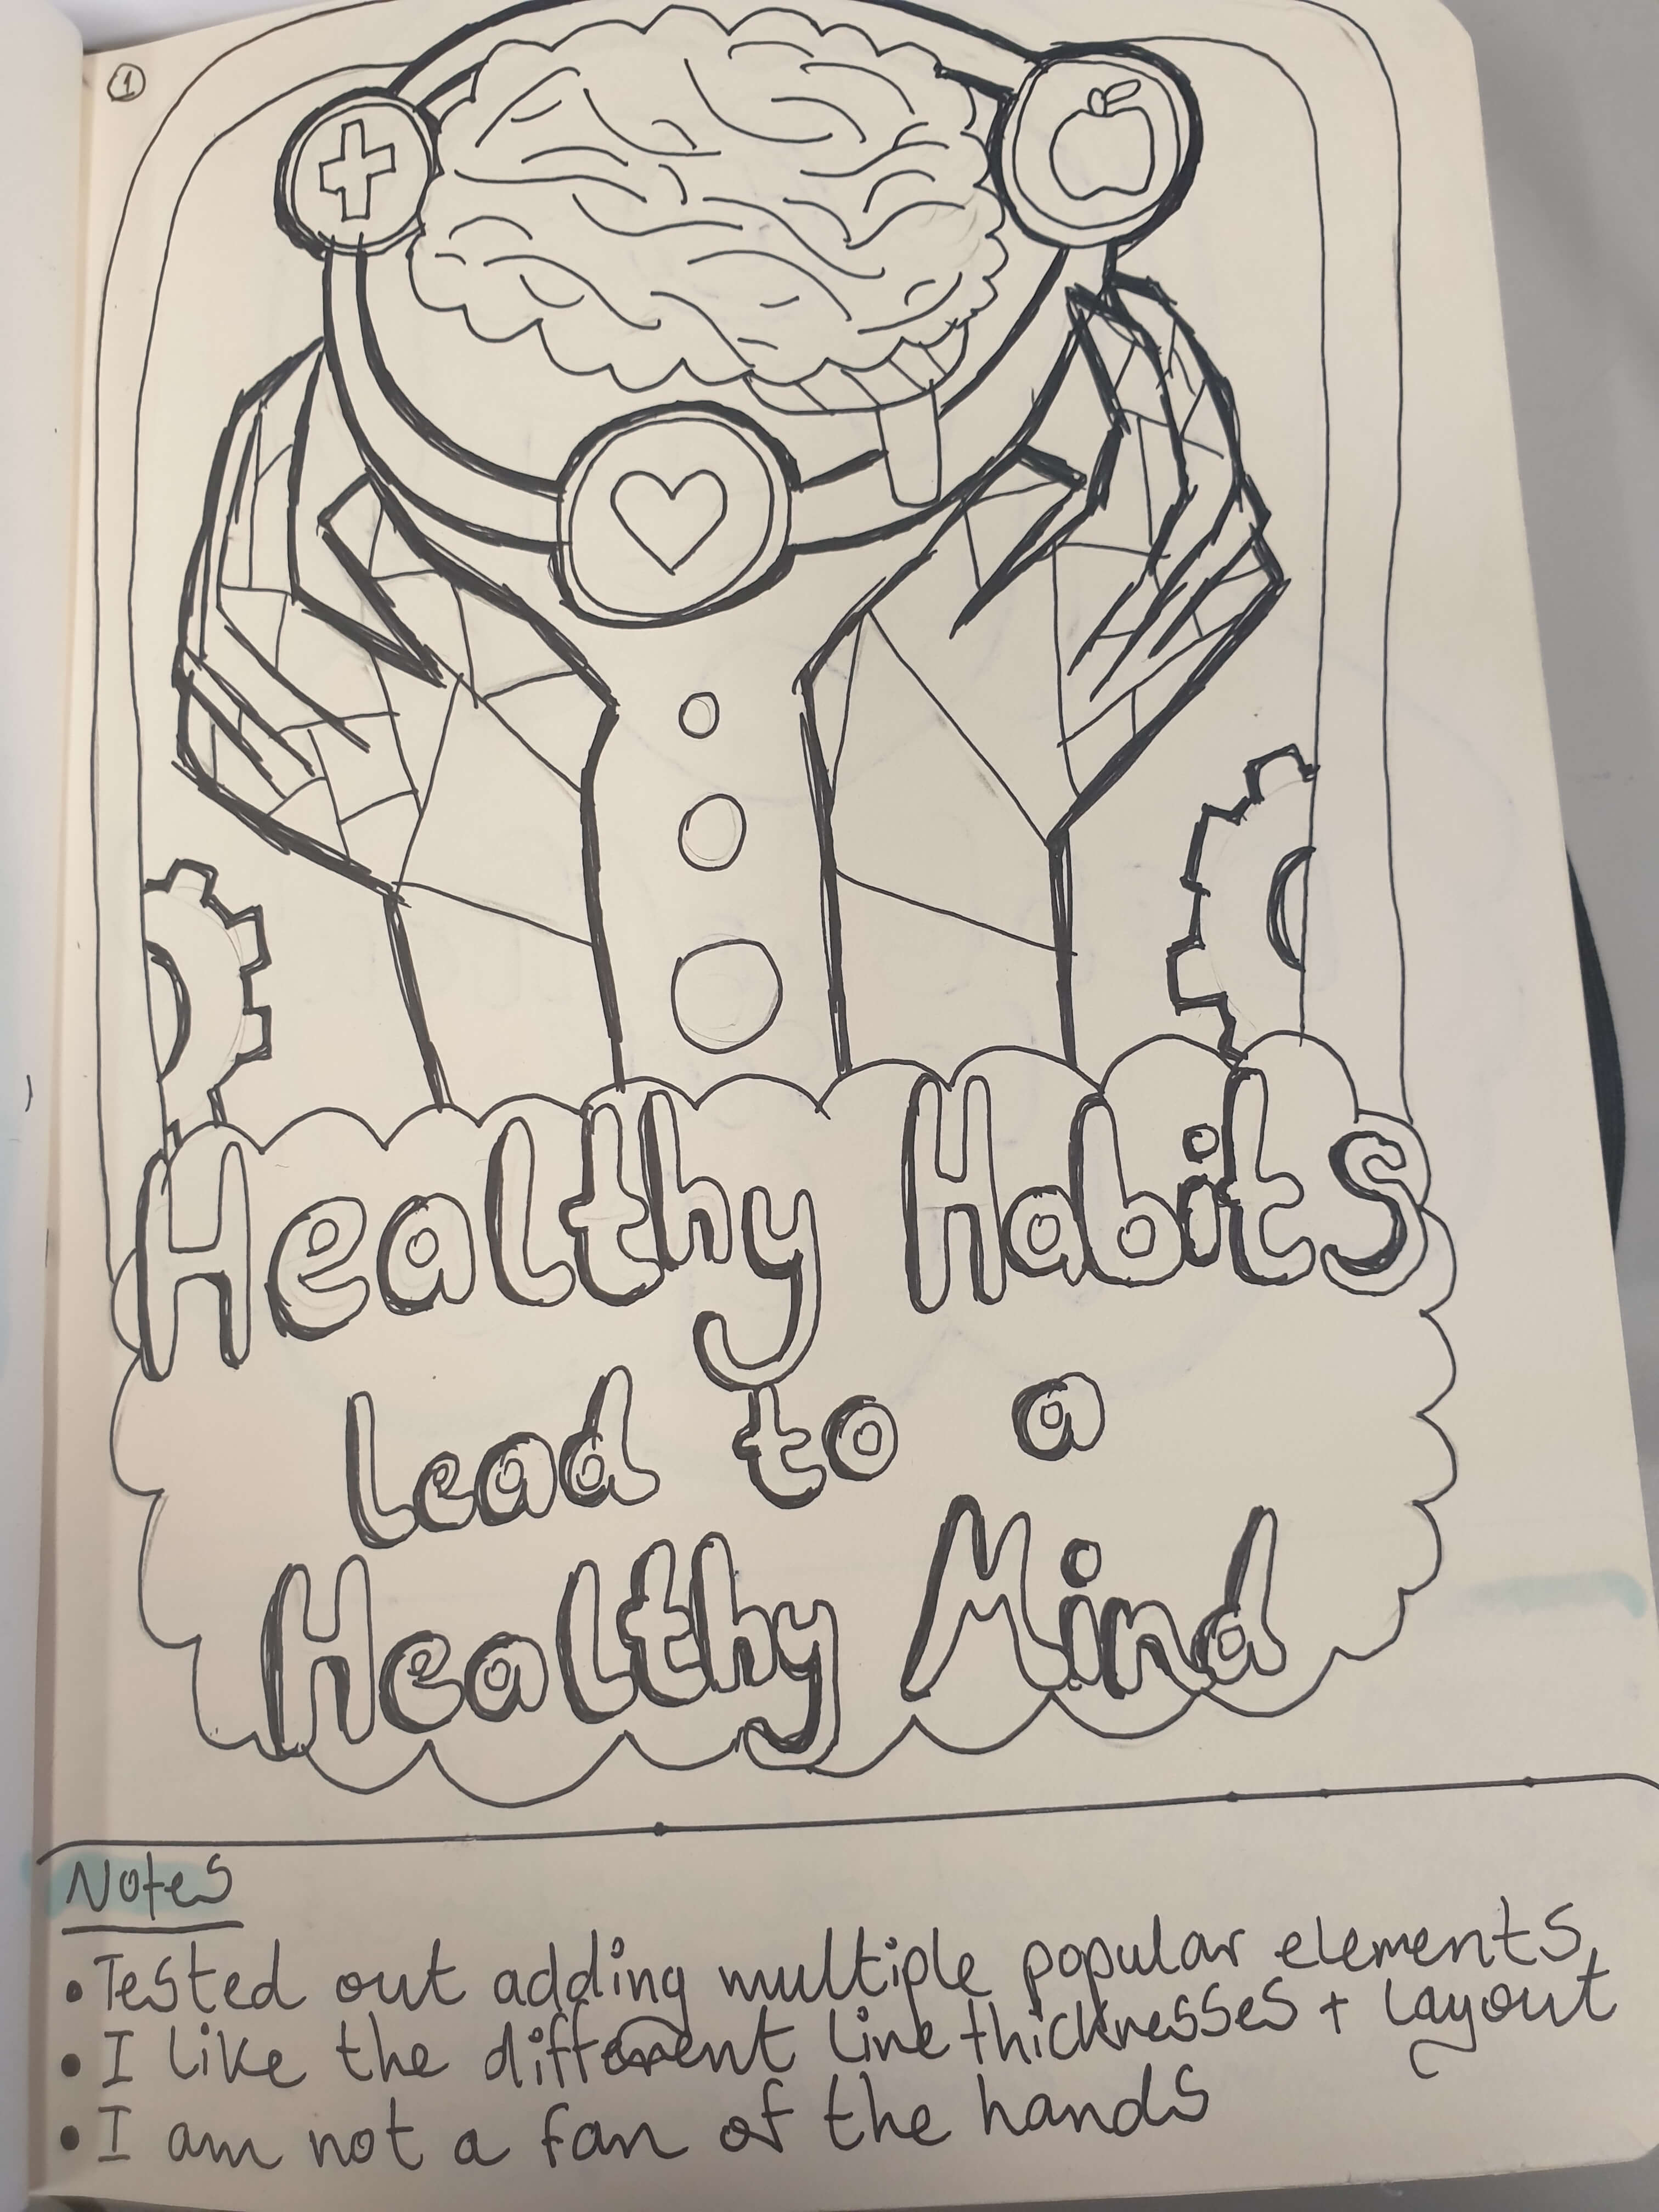 1
Healthy Habits
lead to a
Healthy Mind
Notes
• Tested out adding multiple popular elements,
• I like the different line thicknesses + layout
• I am not a fan of the hands